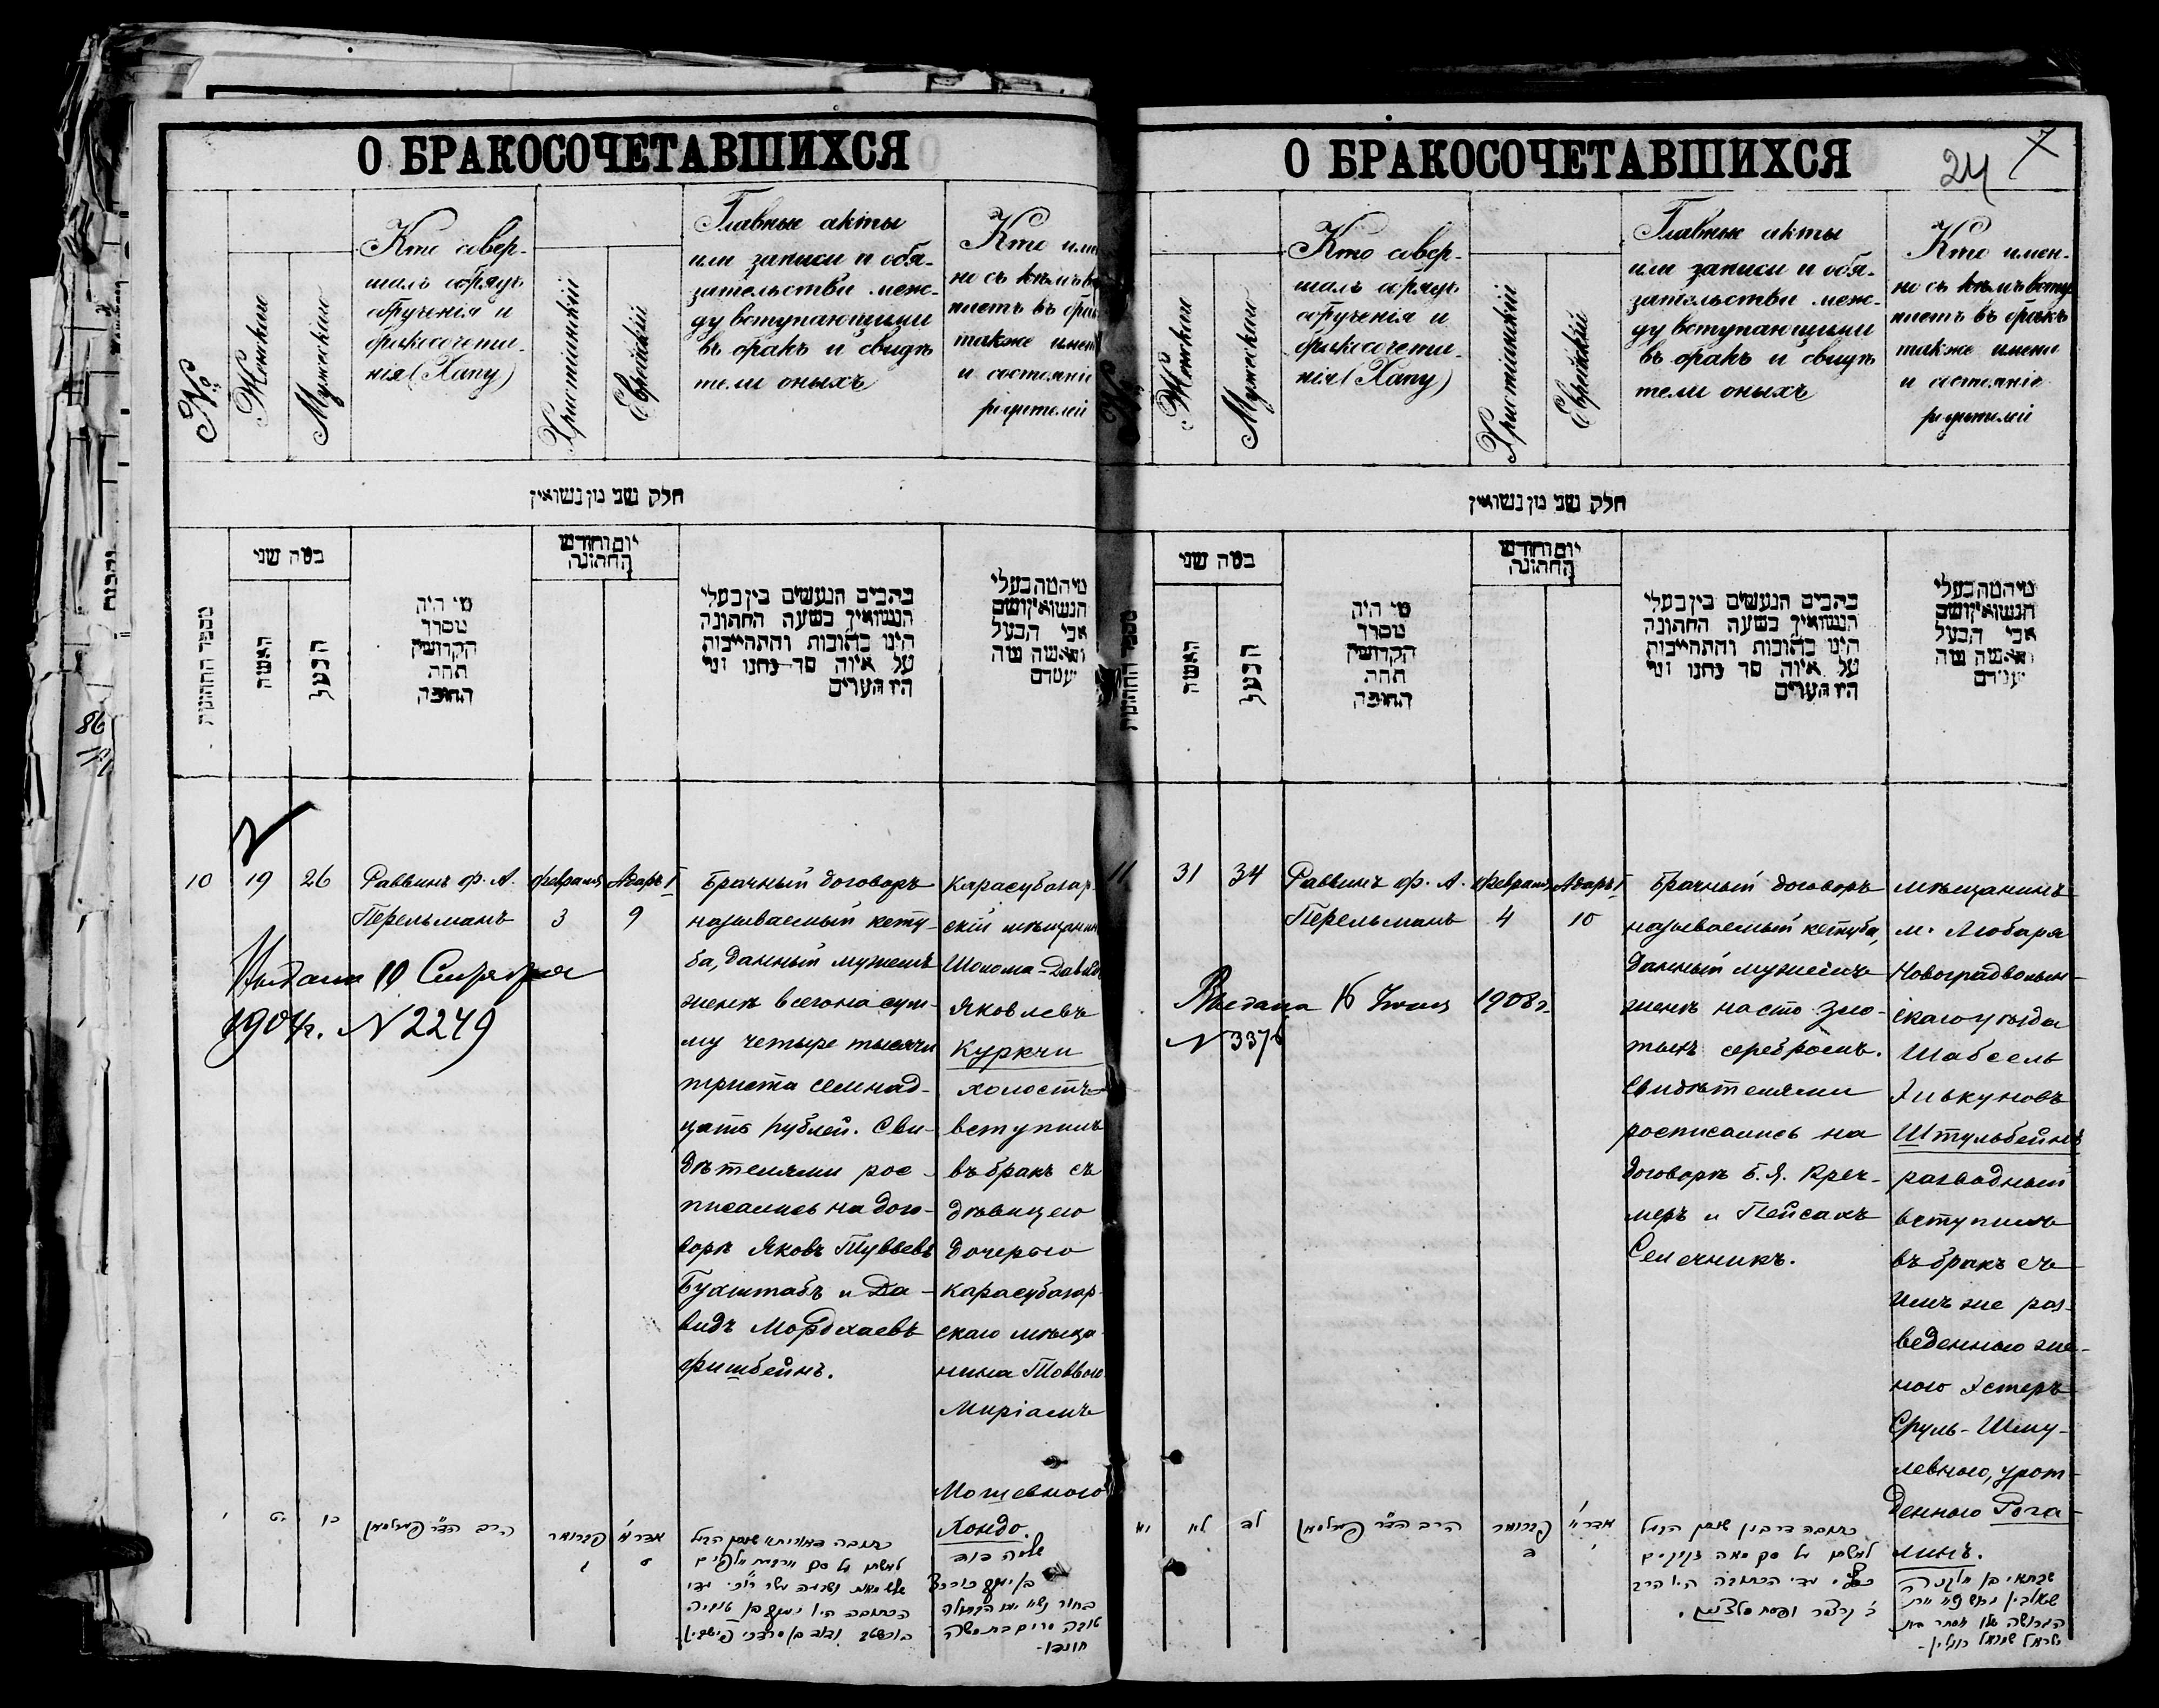 О БРАКОСОЧЕТАВШИХСЯ
№
Женскаго
Мужескаго
Кто совер-
шалъ обрядъ
обрученія и
бракосочета-
нія (Хапу)
Христіанскій
Еврейскій
Главные акты
или записи и обя-
зательства меж-
ду вступающими
въ бракъ и свидѣ
тели оныхъ
Кто имен
но съ кѣмъ вс
паетъ въ бра
также имен
и состояніе
родителей
חלק שני מן נשואין
מספר החתונות
כמה שני
האשה
הבעל
מי היה
מסדר
הקדושין
תחת
החופה
יום וחודש
החתונה
כתבים הנעשים בין בעלי
הנשואין בשעת החתונה
היינו כתובות והתחייבות
על איזה סך נתנו ומי
היו העדים
מי המה בעלי
הנשואין ושם
אבי הבעל
והאשה מה
מעמדם
10
19
26
Раввинъ Ф. А.
Перельманъ
Февраля
3
Адаръ I
9
Брачный договоръ
называемый кету-
ба, данный мужемъ
женѣ всего на сум-
му четыре тысячи
триста семнад-
цать рублей. Сви-
дѣтелями рос-
писались на дого-
ворѣ Яковъ Тувьевъ
Бухштабъ и Да-
видъ Мордхаевъ
Фишбейнъ.
Карасубазар-
скій мѣщанин
Шолома-Давид
Яковлевъ
Куркчи
холостъ
вступилъ
въ бракъ съ
дѣвицею
дочерью
карасубазар-
скаго мѣща-
нина Товвою
Миріамъ
Мошевною
Хондо.
Выдана 10 Сентября
1904 г. N 2249
י
יט
כו
הרב הד״ר פערלמאן
פברואר
אדר א׳
ט
О БРАКОСОЧЕТАВШИХСЯ
24
Женскаго
Мужескаго
Кто совер-
шалъ обрядъ
обрученія и
бракосочета-
нія (Хапу)
Христіанскій
Еврейскій
Главные акты
или записи и обя-
зательства меж-
ду вступающими
въ бракъ и свидѣ
тели оныхъ
Кто имен-
но съ кѣмъ всту
паетъ въ бракъ
также имена
и состояніе
родителей
חלק שני מן נשואין
מספר החתונות
כמה שני
האשה
הבעל
מי היה
מסדר
הקדושין
תחת
החופה
יום וחודש
החתונה
כתבים הנעשים בין בעלי
הנשואין בשעת החתונה
היינו כתובות והתחייבות
על איזה סך נתנו ומי
היו העדים
מי המה בעלי
הנשואין ושם
אבי הבעל
והאשה מה
מעמדם
11
31
34
Раввинъ Ф. А.
Перельманъ
Февраля
4
Адаръ I
10
Брачный договоръ
называемый кетуба,
данный мужемъ
женѣ на сто зло-
тыхъ серебромъ.
Свидѣтелями
росписались на
договорѣ Б. Я. Креч-
меръ и Пейсахъ
Селечникъ.
Мѣщанинъ
м. Любаря
Новоградволын-
скаго уѣзда
Шабсель
Элькуновъ
Штульбейнъ
разводный
вступилъ
въ бракъ съ
имъ же раз-
веденною же-
ною Эстеръ
Сруль-Шму-
левною, урож-
денною Рога-
линъ.
Выдана 16 Іюня 1908 г.
N 3376
יא
לא
לד
הרב הד״ר פערלמאן
פברואר
ד
אדר א׳
י